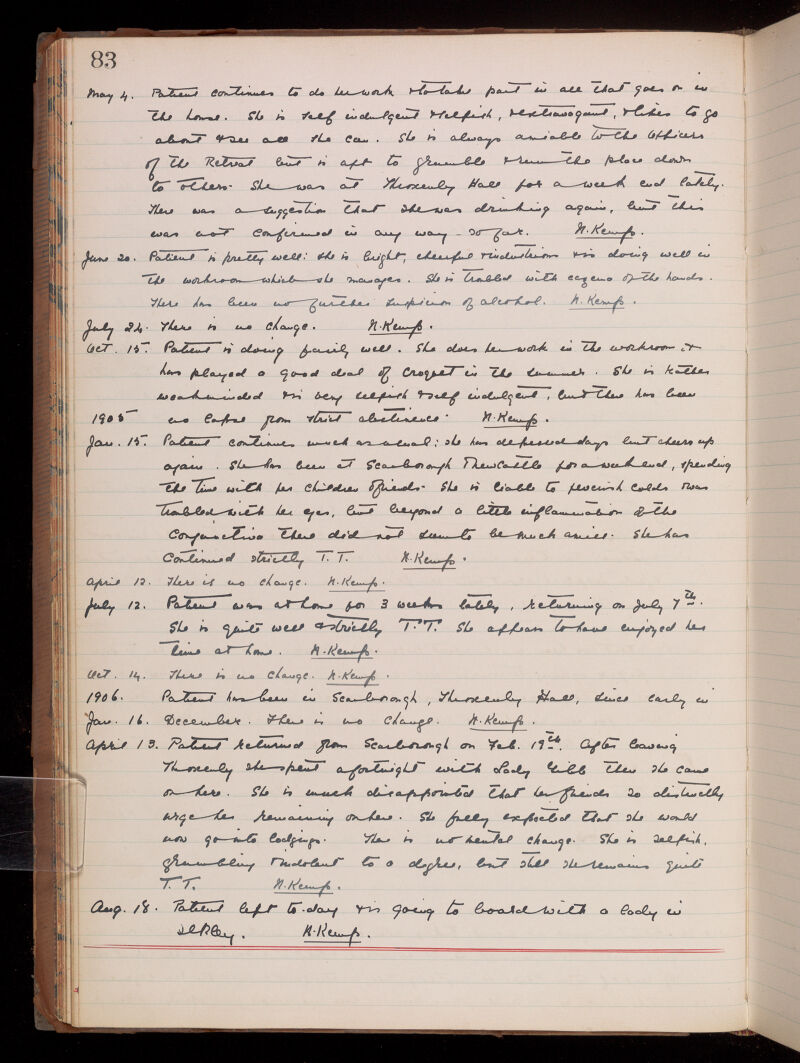 83
May 4. Patient continues to do her work & to take part in all that goes on in
the house. She is self indulgent & selfish, & extravagant, & likes to go
about & see all she can. She is always amiable to the Officers
of the Retreat but is apt to grumble & run the place down
to others. She was at Throxenby Hall for a week end lately.
There was a suggestion that she was drinking again, but this
was not confirmed in any way - so far. N. Kemp.
June 20. Patient is pretty well: she is bright, cheerful & industrious & is doing well in
the workroom which she manages. She is troubled with eczema of the hands.
There has been no further suspicion of alcohol. N. Kemp.
July 24. There is no change. N. Kemp.
Oct. 15. Patient is doing fairly well. She does her work in the workroom &
has played a good deal of croquet in the summer. She is rather
weakminded & is very selfish & self indulgent, but there has been
1905 no lapse from strict abstinence. N. Kemp.
Jan. 15. Patient continues much as usual: she has depressed days but cheers up
again. She has been at Scarborough & Newcastle for a week end, spending
the time with her children & friends. She is liable to feverish colds & was
troubled with her eyes, but beyond a little inflammation of the
Conjunctiva there did not seem to be much amiss. She has
continued strictly T.T. N. Kemp.
April 12. There is no change. N. Kemp.
July 12. Patient was at home for 3 weeks lately, returning on July 7th.
She is quite well & strictly T.T. She appears to have enjoyed her
time at home. N. Kemp.
Oct. 14. There is no change. N. Kemp.
1906. Patient has been in Scarborough, Throxenby Hall, since early in
Jan. 16. December. There is no change. N. Kemp.
April 13. Patient returned from Scarborough on Feb. 19th. After leaving
Throxenby she spent a fortnight with Lady Gibb then she came
on here. She is much disappointed that her friends so distinctly
urge her remaining on here. She fully expected that she would
now go into lodgings. There is no mental change. She is selfish,
grumbling & indolent to a degree, but still she remains quite
T.T. N. Kemp.
Aug. 18. Patient left to-day & is going to board with a lady in
Ilkley. N. Kemp.